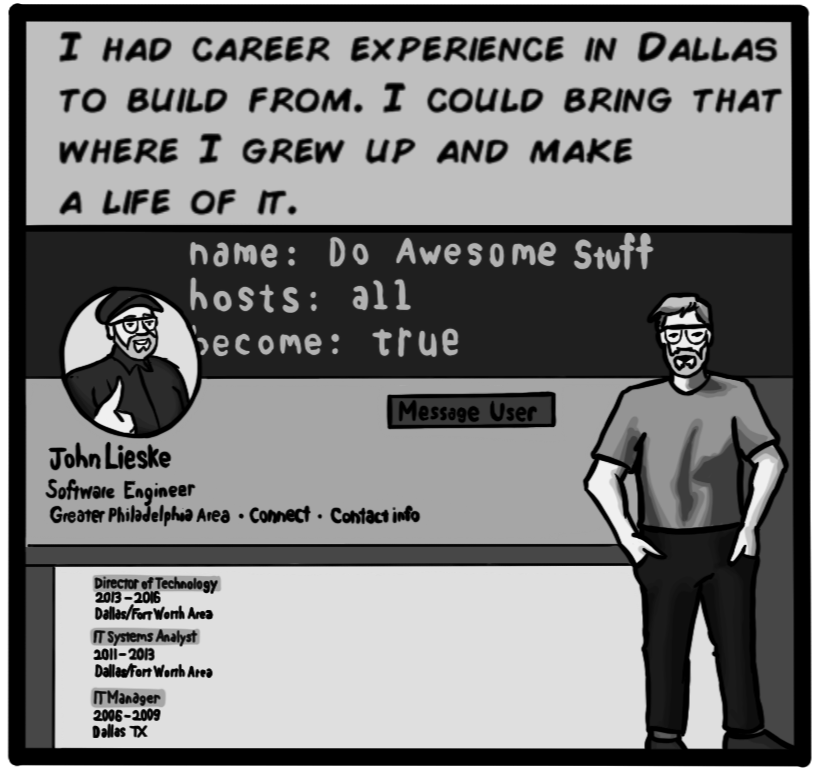 I HAD CAREER EXPERIENCE IN DALLAS
TO BUILD FROM. I COULD BRING THAT
WHERE I GREW UP AND MAKE
A LIFE OF IT.
name: Do Awesome Stuff
hosts: all
become: true
Message User
John Lieske
Software Engineer
Greater Philadelphia Area · Connect · Contact info
Director of Technology
2013 - 2016
Dallas/Fort Worth Area
IT Systems Analyst
2011 - 2013
Dallas/Fort Worth Area
IT Manager
2006 - 2009
Dallas TX